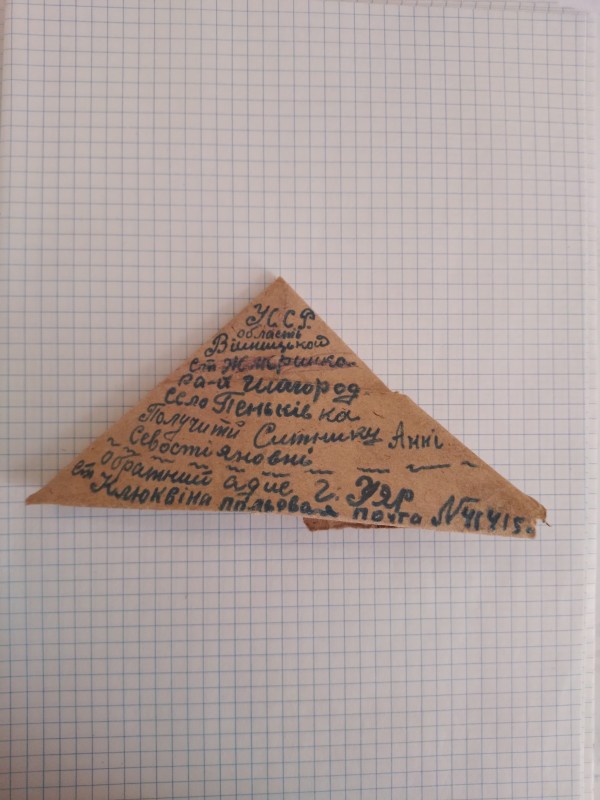 У.С.С.Р.
область
Вінницького
ст Жмринка
ра-й Шагород
село Пеньківка
Получити Ситнику Анні
Севостіяновні
обратний адис г. Уяр
ст Клюквіна пальовая почта №